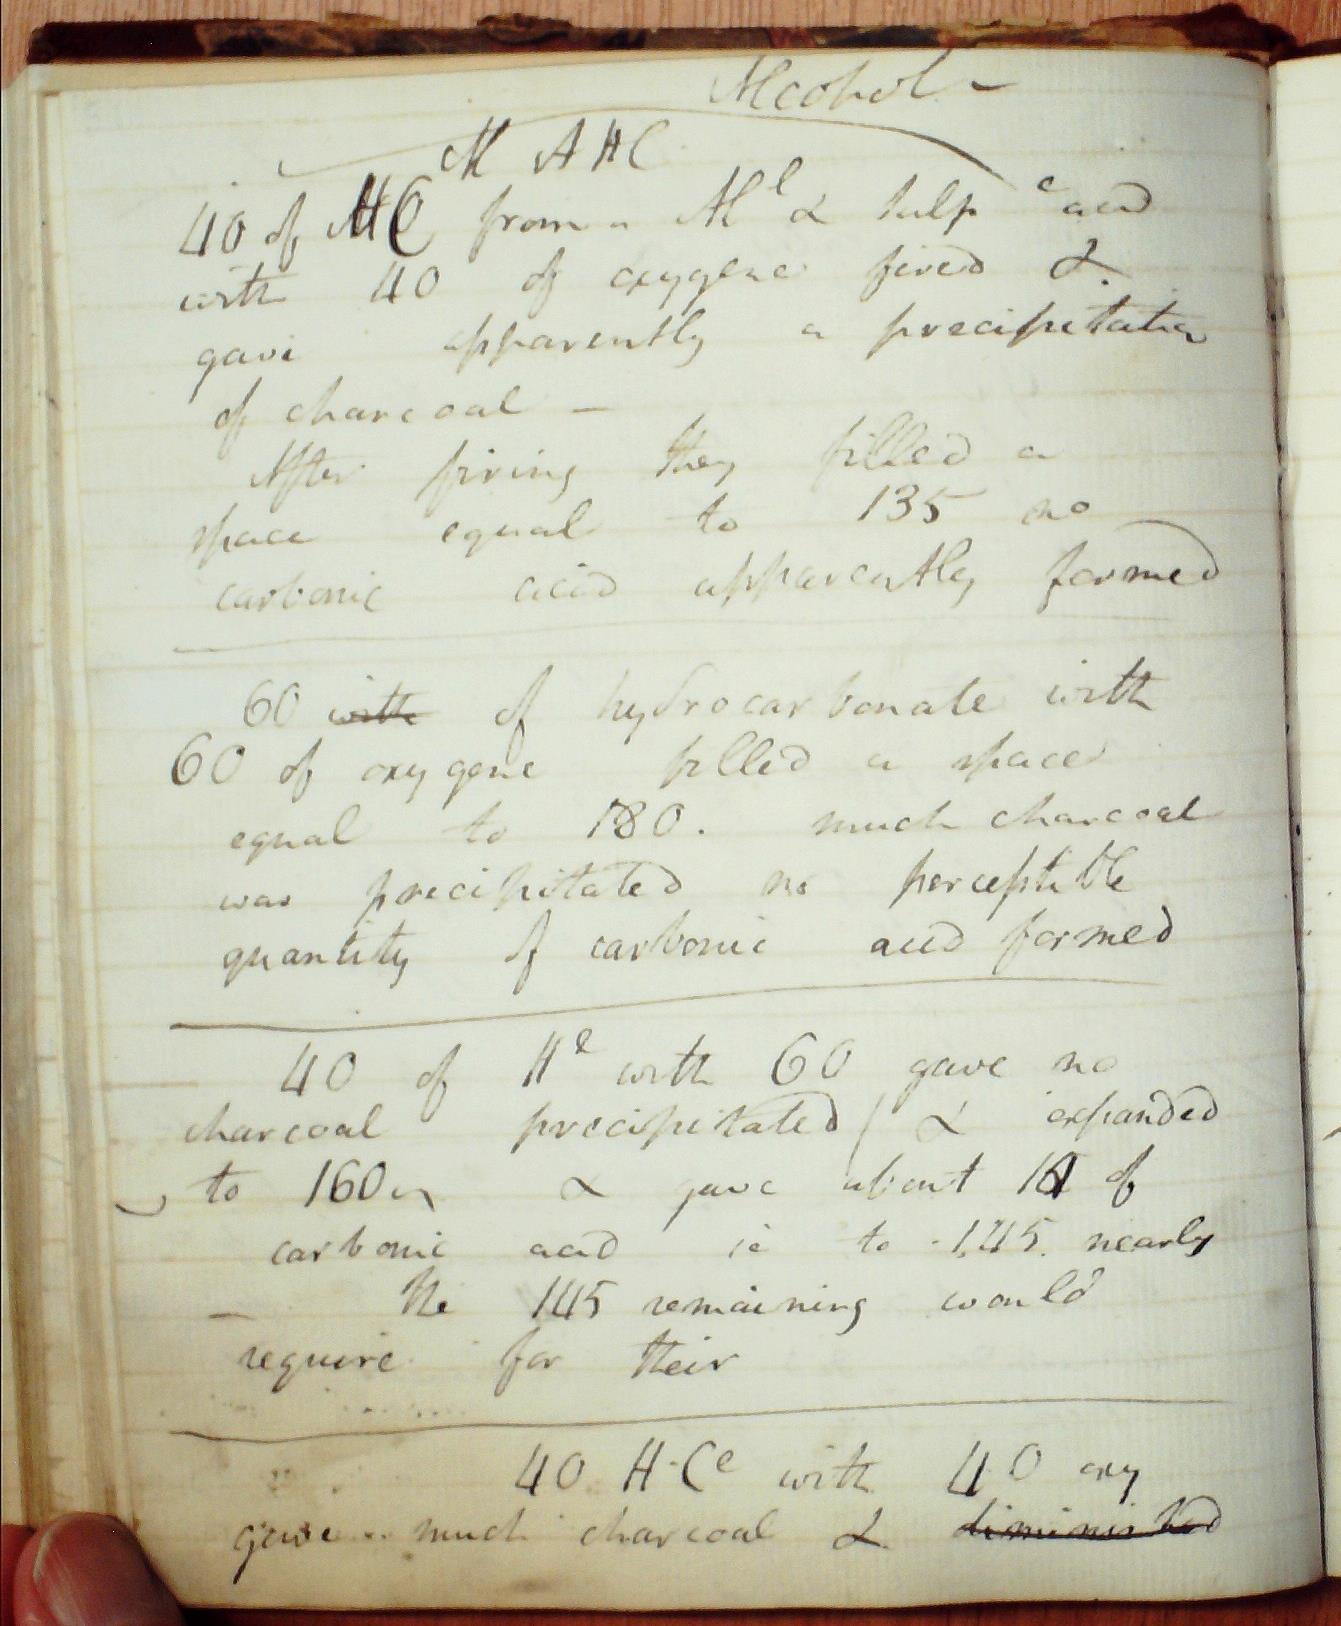 Alcohol -
M A H C
40 of HC from Al^l & sulp^c acid
with 40 of oxygene fired &
gave apparently a precipitation
of charcoal -
After firing they filled a
space equal to 135 no
carbonic acid apparently formed
60 with of hydrocarbonate with
60 of oxygene filled a space
equal to 180. much charcoal
was precipitated no perceptible
quantity of carbonic acid formed
40 of H^e with 60 gave no
charcoal precipitated / & expanded
to 160 & gave about of
carbonic acid ie to 145. nearly
- the 145 remaining would
require for their
40 H-C^e with 40 oxy
gave much charcoal & diminished